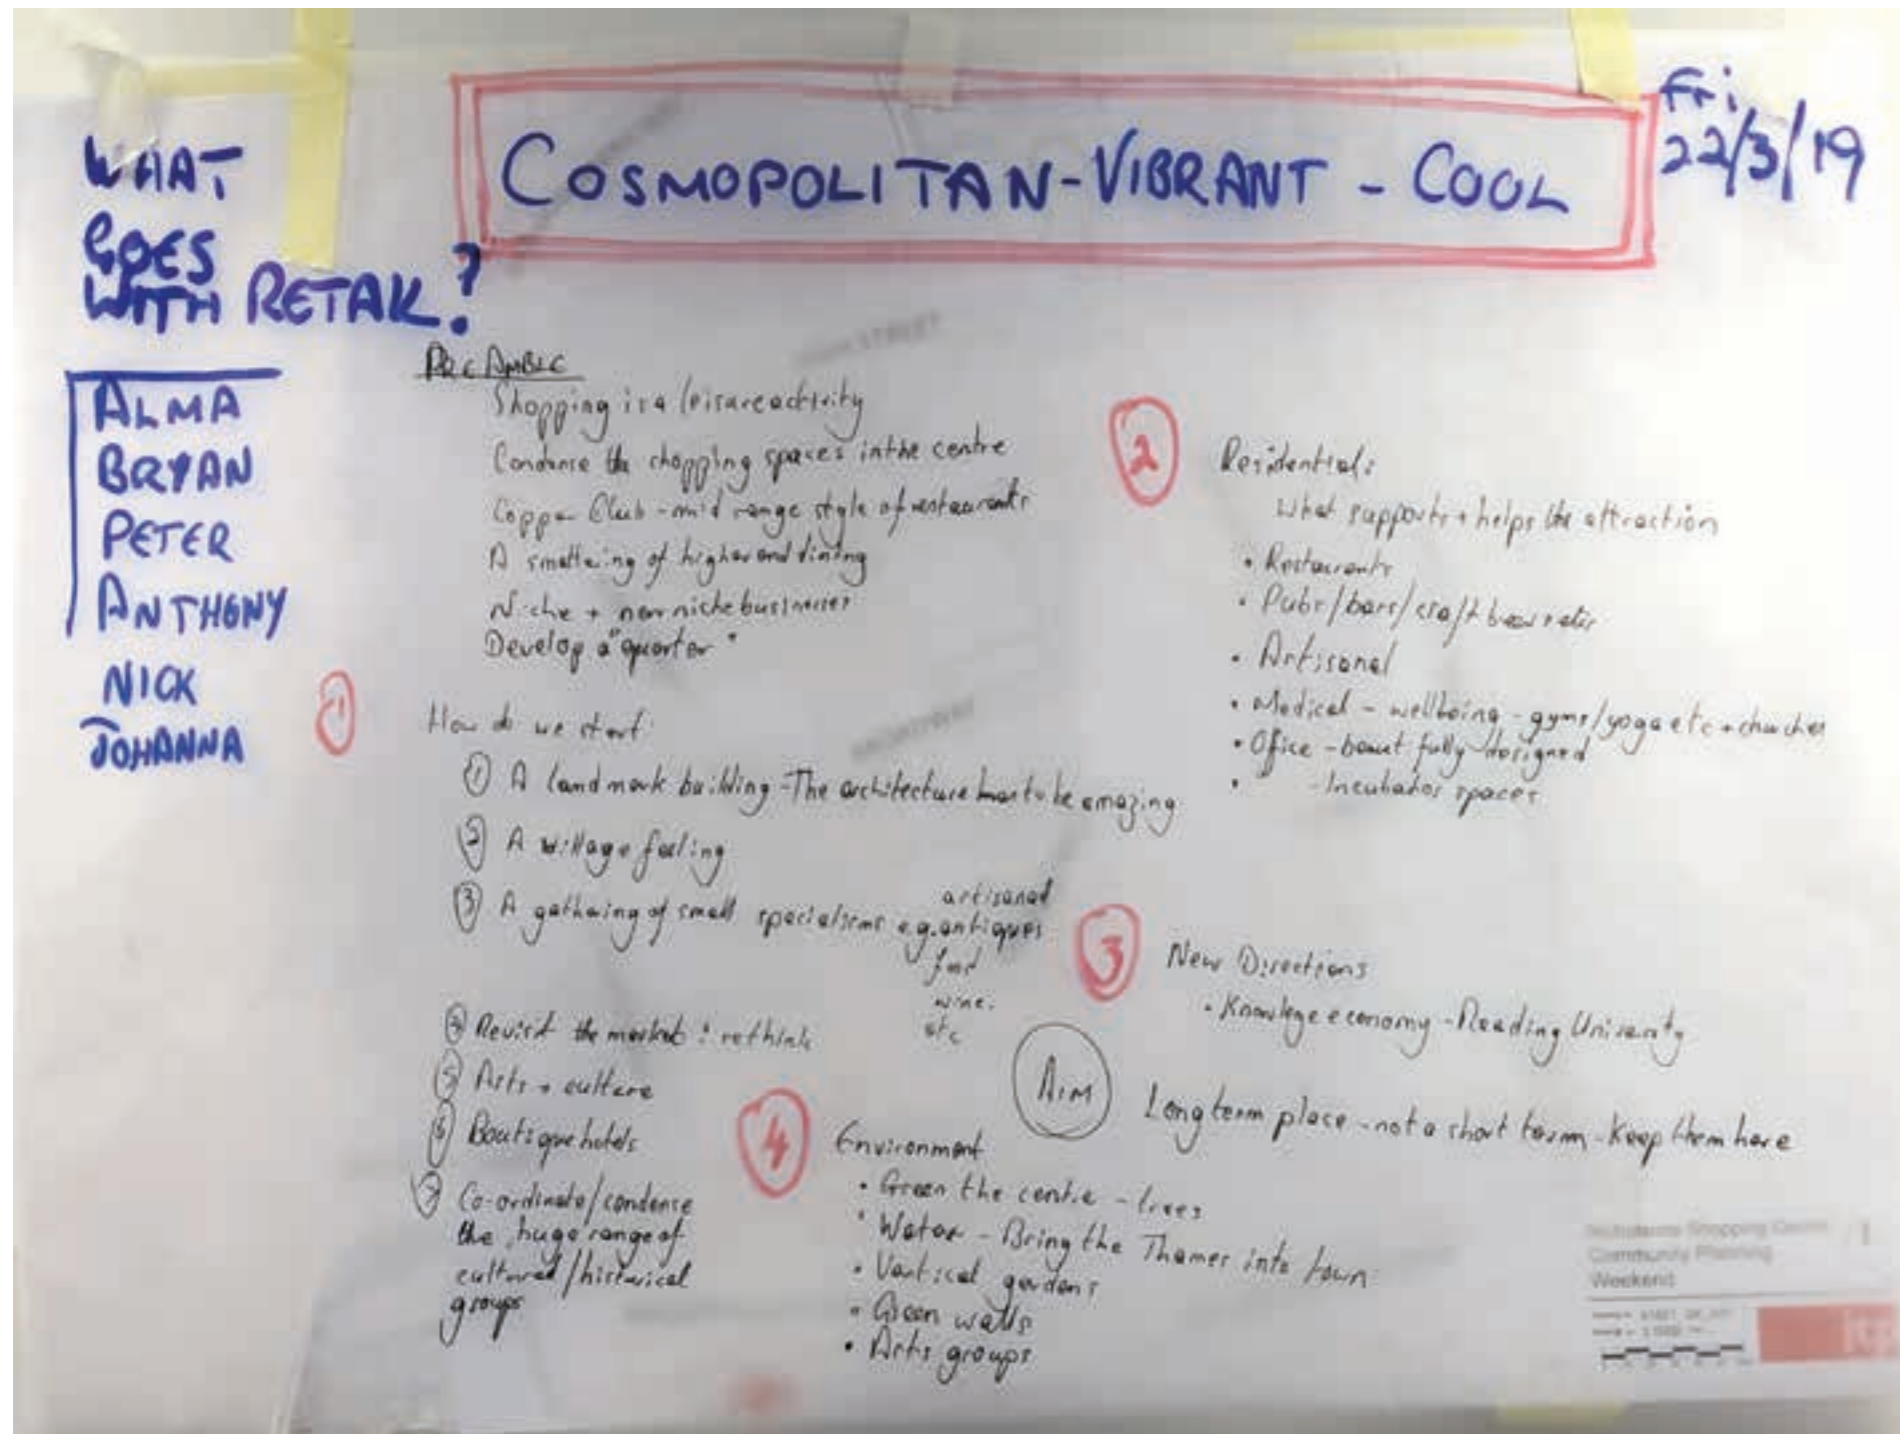 Fri
22/3/19
COSMOPOLITAN-VIBRANT - COOL
WHAT
GOES
WITH RETAIL?
ALMA
BRYAN
PETER
ANTHONY
NICK
JOHANNA
PREAMBLE
Shopping is a leisure activity
Condense the shopping spaces in the centre
Coppa Club - mid range style of restaurants
A smattering of higher end dining
Niche + new niche businesses
Develop a "quarter"
1
How do we start:
① A landmark building - The architecture has to be amazing
② A village feeling
③ A gathering of small specialisms e.g. antiques
artisanal
food
wine.
etc
④ Revisit the market : rethink
⑤ Arts + culture
⑥ Boutique hotels
⑦ Co-ordinate/condense
the huge range of
cultural/historical
groups
2
Residential:
What supports + helps the attraction
• Restaurants
• Pubs/bars/craft breweries
• Artisanal
• Medical - wellbeing - gyms/yoga etc + churches
• Office - beautifully designed
• - Incubator spaces
3
New Directions
• Knowlege economy - Reading University
AIM
Long term place - not a short term - Keep them here
4
Environment
• Green the centre - trees
• Water - Bring the Thames into town
• Vertical gardens
• Green walls
• Arts groups
Shopping Centre
Community Planning
Weekend
1